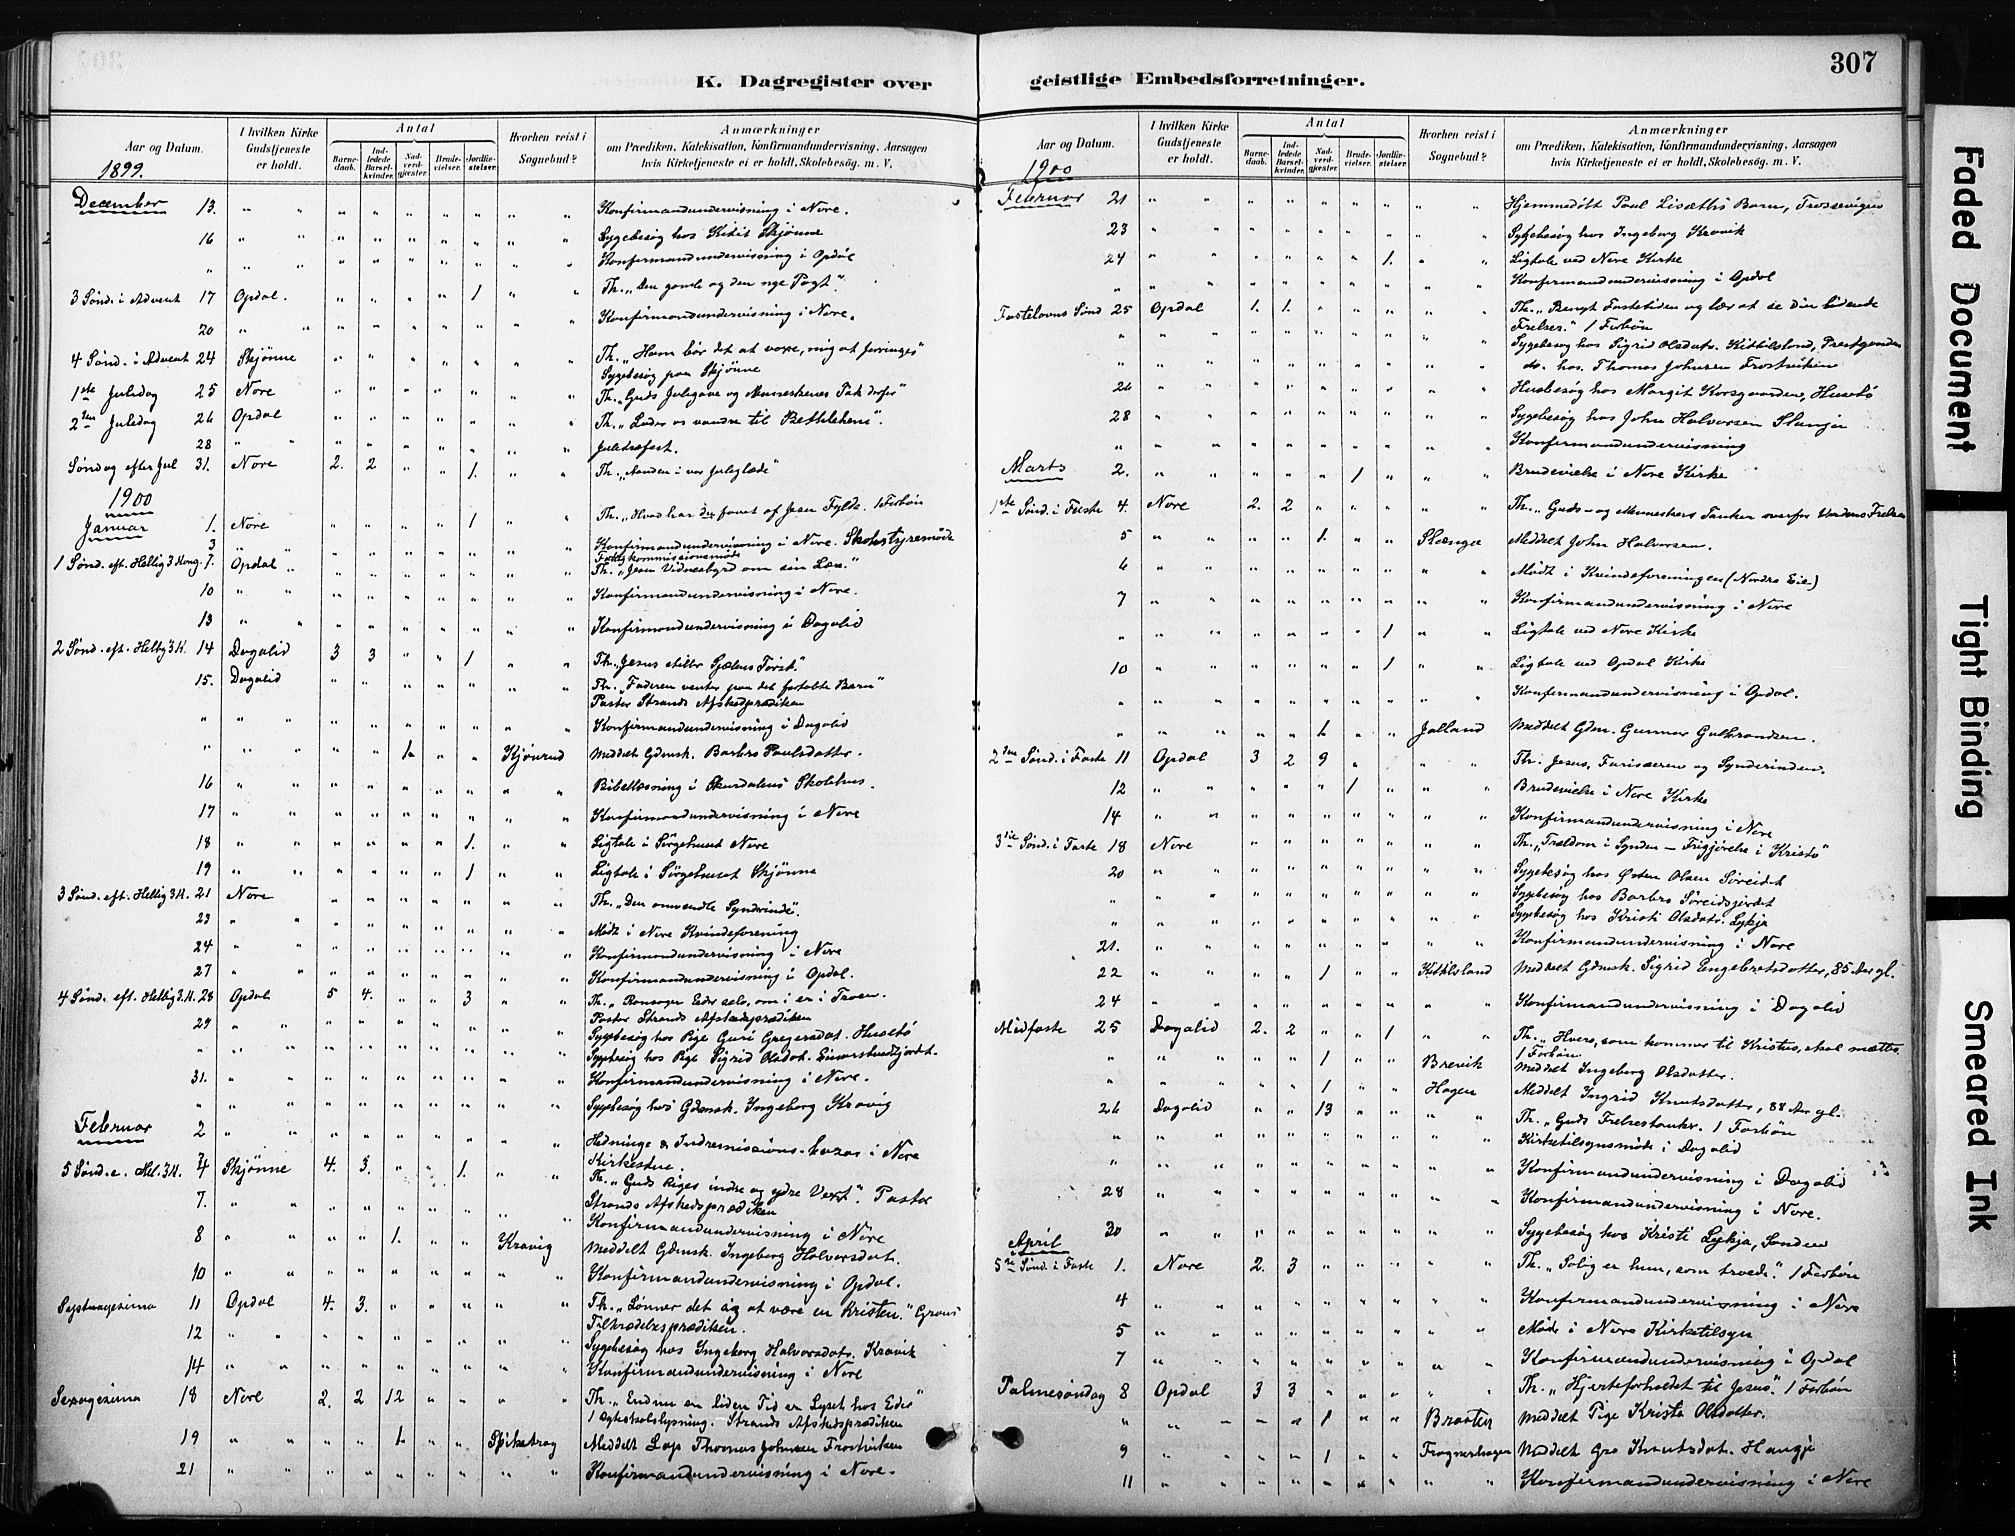 307
K. Dagregister over
geistlige Embedsforretninger.
Aar og Datum.
I hvilken Kirke Gudstjeneste er holdt.
Antal
Barnedaab.
Indledede Barselkvinder.
Nadverdgjester.
Brudevielser.
Jordfæstelser.
Hvorhen reist i Sognebud?
Anmærkninger
om Prædiken, Katekisation, Konfirmandundervisning, Aarsagen
hvis Kirketjeneste ei er holdt, Skolebesøg. m. V.
1899.
December 13. " " " " " " " " " Konfirmandundervisning i Nore.
16 " " " " " " " " " Sygebesøg hos Kittil Skjønne
" " " " " " " " " Konfirmandundervisning i Opdal
3 Sønd. i Advent 17 Opdal. " " " " 1 " " Th. "Den gamle og den nye Pagt".
20 " " " " " " " " " Konfirmandundervisning i Nore.
4 Sønd. i Advent 24 Skjønne " " " " " " " Th. "Ham bør det at voxe, mig at forringes"
Sygebesøg paa Skjønne
1ste Juledag 25 Nore " " " " " " " Th. "Guds Julegave og Menneskenes Takoffer"
2den Juledag 26 Opdal " " " " " " " Th. "Lader os vandre til Bethlehem".
28 " " " " " " " " " Juletræfest.
Søndag efter Jul 31. Nore 2. 2 " " 1. " " Th. "Aanden i vor Juleglæde"
1900
Januar 1. Nore " " " " 1 " " Th. "Hvad har du faaet af Jesu Fylde. 1 Forbøn
3 " " " " " " " " " Konfirmandundervisning i Nore. Skolestyremøde
Fattigkommissionsmøde
1 Sønd. eft. Hellig 3 Kong. 7. Opdal " " " " " " " Th. "Jesu Vidnesbyrd om sin Lære."
10 " " " " " " " " " Konfirmandundervisning i Nore.
13 " " " " " " " " " Konfirmandundervisning i Dagalid
2 Sønd. eft. Hellig 3 K. 14 Dagalid 3 3 " " 1 " " Th. "Jesus stiller Sjælens Tørst."
15. Dagalid " " " " " " " Th. "Faderen venter paa det fortabte Barn"
Pastor Strands Afskedsprædiken
" " " " " " " " " Konfirmandundervisning i Dagalid
" " " " " 1. " " Kjønrud Meddelt Gdmsk. Barbro Paulsdatter.
16 " " " " " " " " " Bibellæsning i Skurdalens Skolehus.
17 " " " " " " " " " Konfirmandundervisning i Nore
18 " " " " " " 1. " " Ligtale i Sørgehuset Nore
19 " " " " " " 1 " " Ligtale i Sørgehuset Skjønne
3 Sønd. eft. Hellig 3 K. 21 Nore " " " " " " " Th. "Den omvendte Synderinde".
23 " " " " " " " " " Møde i Nore Kvindeforening
24 " " " " " " " " " Konfirmandundervisning i Nore
27 " " " " " " " " " Konfirmandundervisning i Opdal.
4 Sønd. eft. Hellig 3 K. 28 Opdal 5 4. " " 3 " " Th. "Ransager Eder selv, om i er i Troen.
Pastor Strands Afskedsprædiken
29 " " " " " " " " " Sygebesøg hos Pige Guri Gregersdat. Husetø
" " " " " " " " " Sygebesøg hos Pige Sigrid Olsdat.
31. " " " " " " " " " Konfirmandundervisning i Nore.
" " " " " " " " " Sygebesøg hos Gdmsk. Ingeborg Kravig
Februar 2 " " " " " " " " " Hednings & Indremissions-bazar i Nore
Kirkestue.
5 Sønd. e. Hel. 3 K. 4 Skjønne 4. 3. " " 1. " " Th. "Guds Riges indre og ydre Vext". Pastor
Strands Afskedsprædiken
7. " " " " " " " " " Konfirmandundervisning i Nore
8 " " " " 1. " " Kravig Meddelt Gdmsk. Ingeborg Halvorsdat.
10 " " " " " " " " " Konfirmandundervisning i Opdal.
Septuagesima 11 Opdal 4. 3. " " " " " Th. "Lønner det sig at være en Kristen."
Tiltrædelsesprædiken.
12 " " " " " " " " " Sygebesøg hos Ingeborg Halvorsdatr. Kravik
14 " " " " " " " " " Konfirmandundervisning i Nore
Sexagesima 18 Nore 2. 2 12 " " " " Th. "Endnu en liden Tid er Lyset hos Eder"
1 Strands Afskedsprædiken
19 " " " " 1. " " Meddelt Lap Thomas Johnsen Frostviken
21 " " " " " " " " " Konfirmandundervisning i Nore.
Aar og Datum.
I hvilken Kirke Gudstjeneste er holdt.
Antal
Barnedaab.
Indledede Barselkvinder.
Nadverdgjester.
Brudevielser.
Jordfæstelser.
Hvorhen reist i Sognebud?
Anmærkninger
om Prædiken, Katekisation, Konfirmandundervisning, Aarsagen
hvis Kirketjeneste ei er holdt, Skolebesøg. m. V.
1900
Februar 21 " " " " " " " " " Hjemmedøbt Paul Lisæths Barn,
23 " " " " " " " " " Sygebesøg hos Ingeborg Kravik
24 " " " " " " 1. " " Ligtale ved Nore Kirke
" " " " " " " " " Konfirmandundervisning i Opdal
Fastelavns Sønd 25 Opdal 1. 1. " " " " " Th. "Benyt Fastetiden og lær at se din lidende
Frelser." 1 Forbøn
" " " " " " " " " Sygebesøg hos Sigrid Olsdatr. Kittilsland, Prestgaarden
" " " " " " " " " do. hos. Thomas Johnsen Frostviken
26 " " " " " " " " " Husbesøg hos Margit Korsgaarden, Husetø
28 " " " " " " " " " Sygebesøg hos John Halvorsen Slænga
" " " " " " " " " Konfirmandundervisning
Marts 2. " " " " " 1 " " " Brudevielse i Nore Kirke
1ste Sønd. i Faste 4. Nore 2. 2 " " " " " Th. "Guds- og Menneskers Tanker overfor Verdens Frelser
5 " " " " 1. " " Slænga Meddelt John Halvorsen.
6 " " " " " " " " " Mødt i Kvindeforeningen (Nordre Eie)
7 " " " " " " " " " Konfirmandundervisning i Nore
" " " " " " 1 " " Ligtale ved Nore Kirke
10 " " " " " " 1 " " Ligtale ved Opdal Kirke
" " " " " " " " " Konfirmandundervisning i Opdal.
" " " " 1 " " Jalland Meddelt Gdm. Gunnar Gulbrandsen.
2den Sønd. i Faste 11 Opdal 3 2 9 " " " " Th. Jesus, Farisæeren og Synderinden.
12 " " " " " 1 " " " Brudevielse i Nore Kirke
14 " " " " " " " " " Konfirmandundervisning i Nore
3die Sønd. i Faste 18 Nore " " " " " " " Th. "Trældom i Synden – Frigjørelse i Kristo"
20 " " " " " " " " " Sygebesøg hos Østen Olsen Søreidet
" " " " " " " " " Sygebesøg hos Barbro Søreidsjordet
" " " " " " " " " Sygebesøg hos Kristi Olsdatr. Lykja
21. " " " " " " " " " Konfirmandundervisning i Nore
22 " " " " 1 " " Kittilsland Meddelt Gdmsk. Sigrid Engebretsdatter, 85 Aar gl.
24 " " " " " " " " " Konfirmandundervisning i Dagalid
Midfaste 25 Dagalid 2. 2 " " 1 " " Th. "Hver, som kommer til Kristus, skal mættes.
1 Forbøn
" " " " 1 " " Brevik Meddelt Ingeborg Olsdatter.
" " " " 1 " " Hagen Meddelt Ingrid Knutsdatter, 88 Aar gl.
26 Dagalid " " 13 " " " " Th. "Guds Frelsestanker. 1 Forbøn
" " " " " " " " " Kirketilsynsmøde i Dagalid
" " " " " " " " " Konfirmandundervisning i Dagalid
28 " " " " " " " " " Konfirmandundervisning i Nore.
30 " " " " " " " " " Sygebesøg hos Kristi Lykja,
April
5te Sønd. i Faste 1. Nore 2. 3 " " " " " Th. "Salig er hun, som troede." 1 Forbøn
4 " " " " " " " " " Konfirmandundervisning i Nore
5 " " " " " " " " " Møde i Nore Kirketilsyn
7 " " " " " " " " " Konfirmandundervisning i Opdal
Palmesøndag 8 Opdal 3 3 " " " " " Th. "Hjerteforholdet til Jesus". 1 Forbøn
" " " " 1 " " Braaten Meddelt Pige Kristi Olsdatter.
9 " " " " 1 " " Frognerhagen Meddelt Gro Knutsdat. Haugje
11 " " " " " " " " " Konfirmandundervisning i Nore
Faded Document
Tight Binding
Smeared Ink